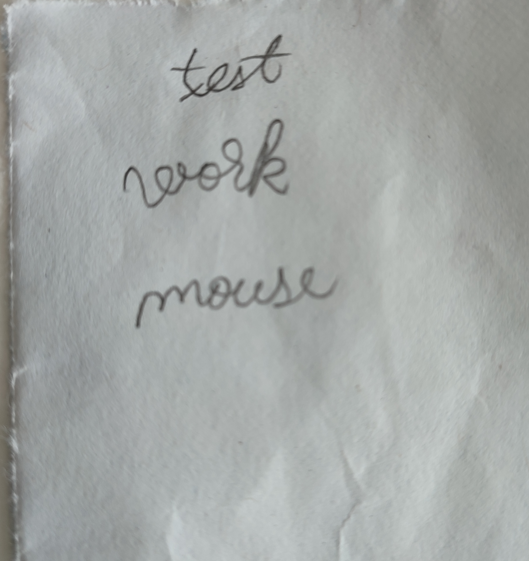 test
work
mouse